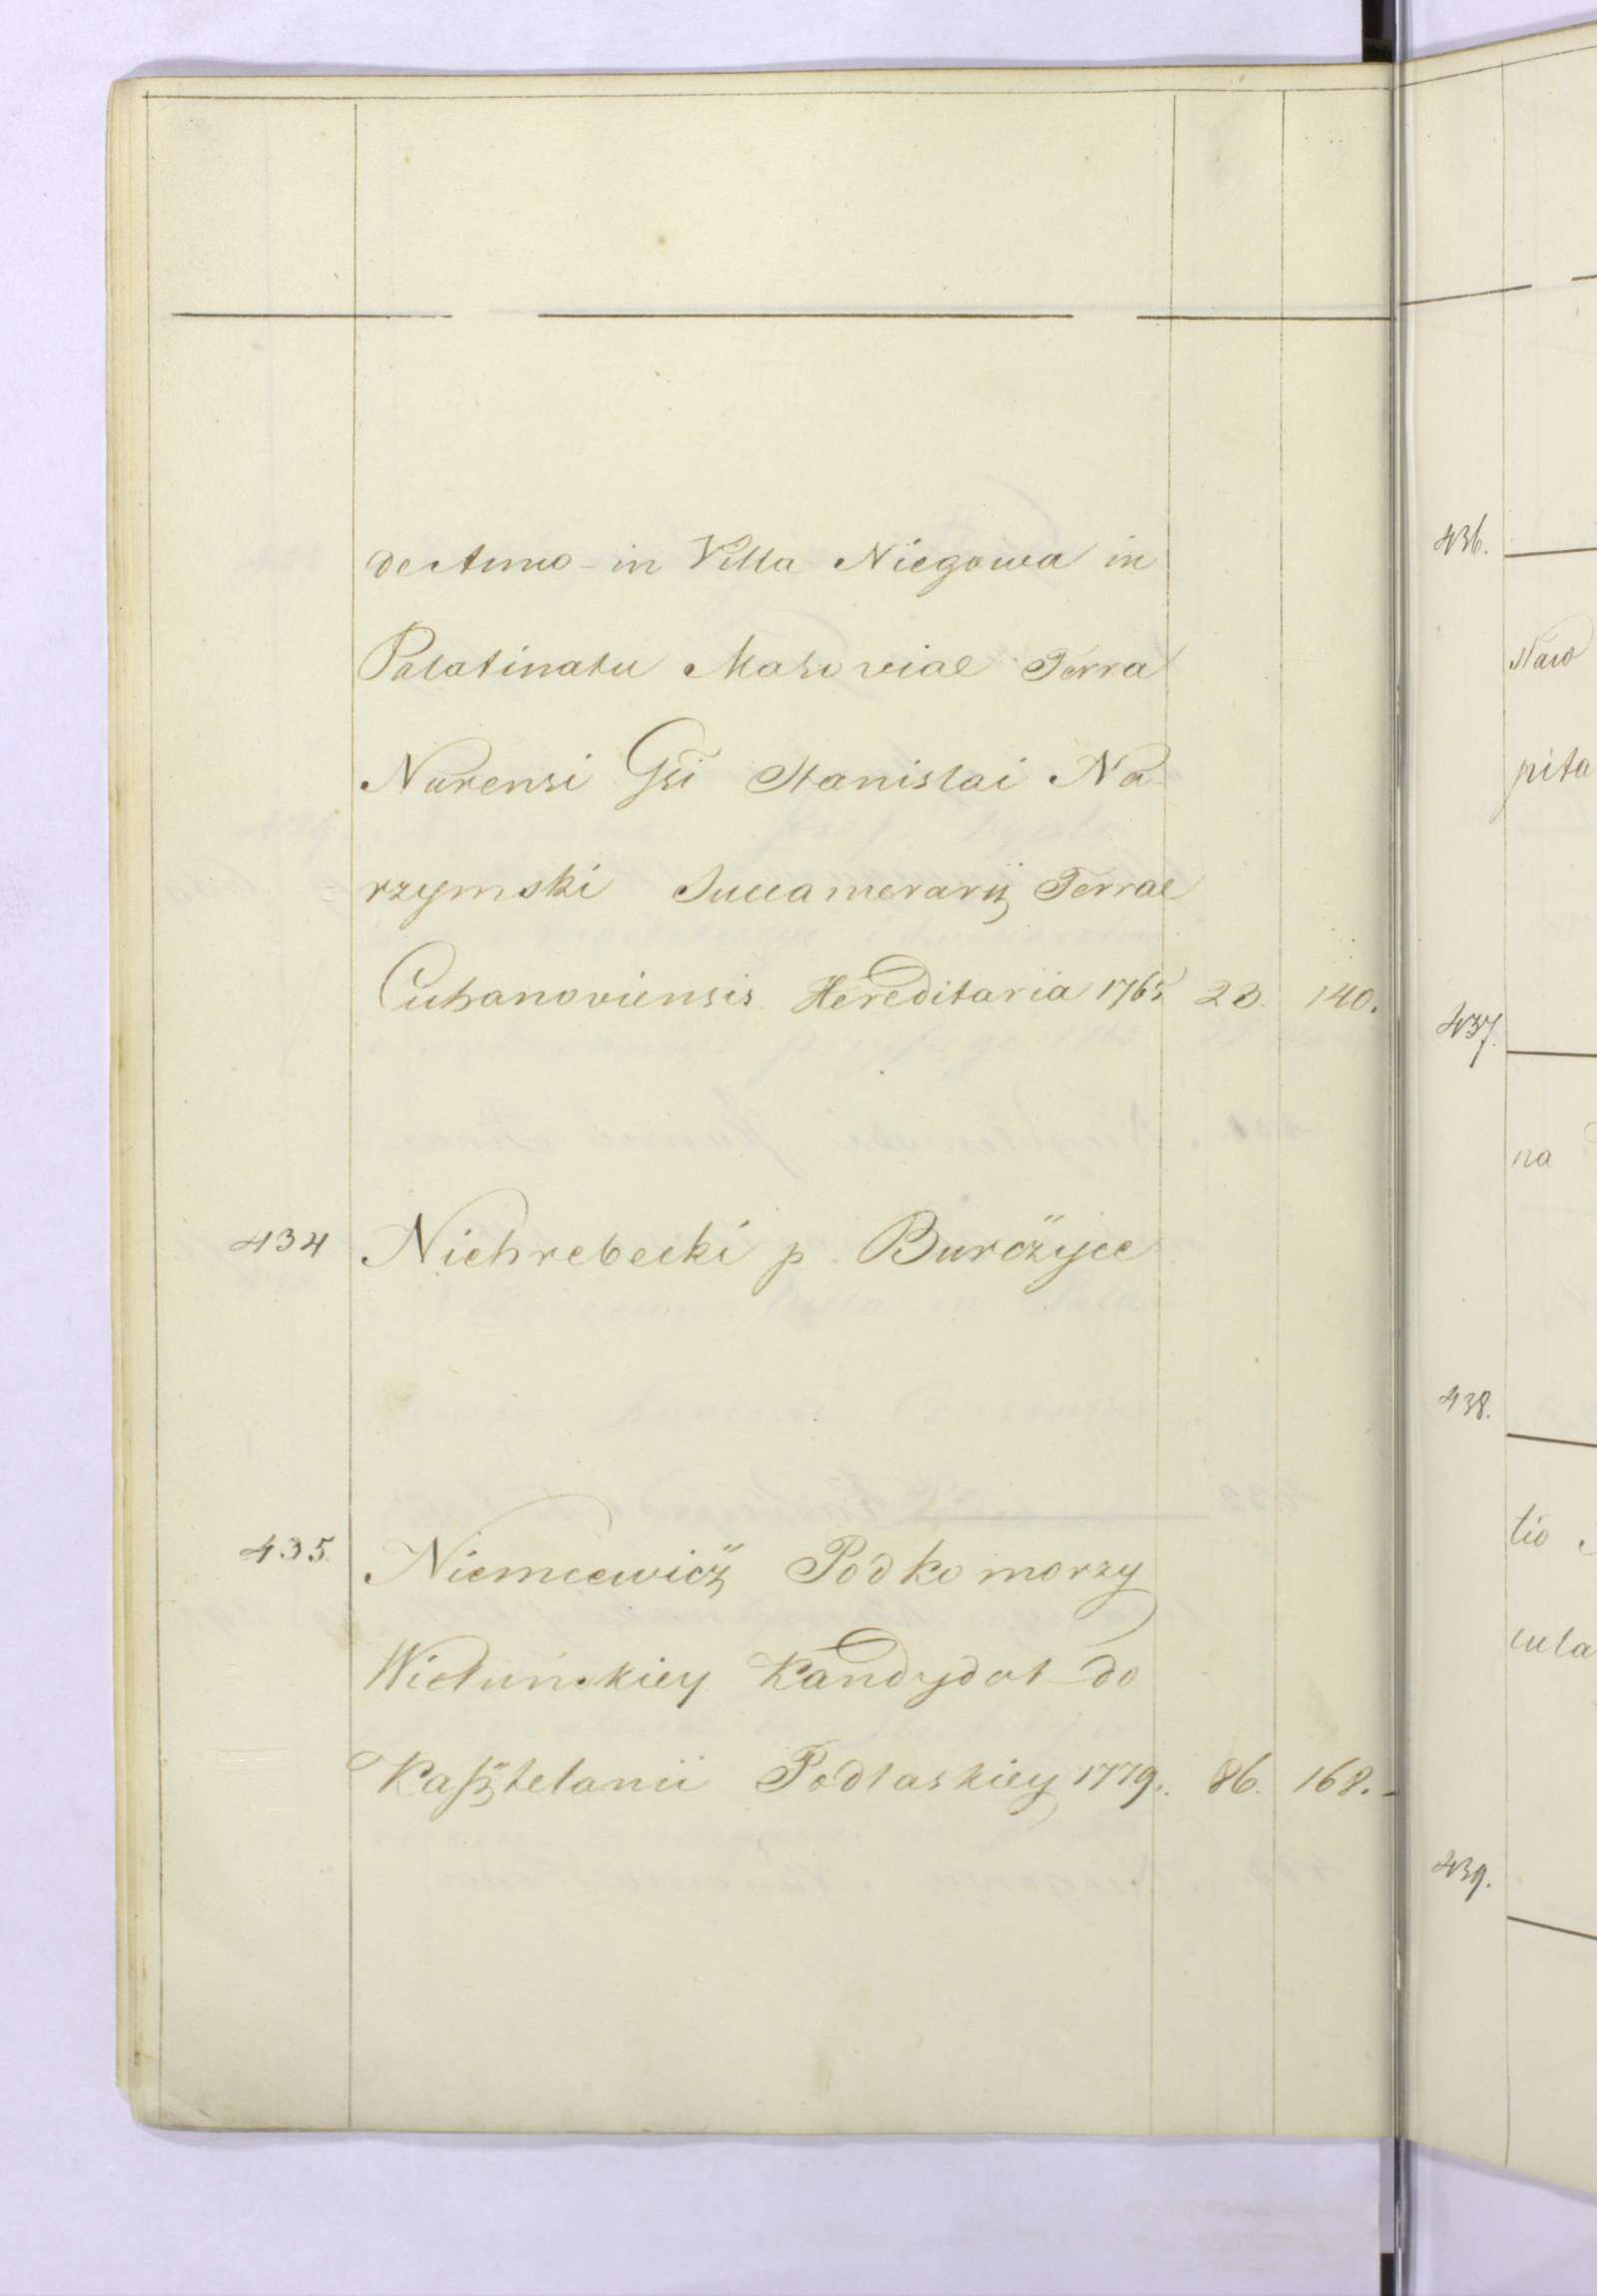 de Anno - in Villa Niegowa in
Palatinatu Masoviae Terra
Nurensi Gsi Stanislai Na
rzymski Succamerarij Terrae
Cuhanoviensis Hereditaria 1765 23. 140.
434 Niehrebecki p. Burczyce
435. Niemcewicz Podkomorzy
Wieluńskiey Kandydat do
Kasztelanii Podlaskiey 1779. 86. 168.-
436.
Naro
pita
437.
na
438.
tio
cula
439.